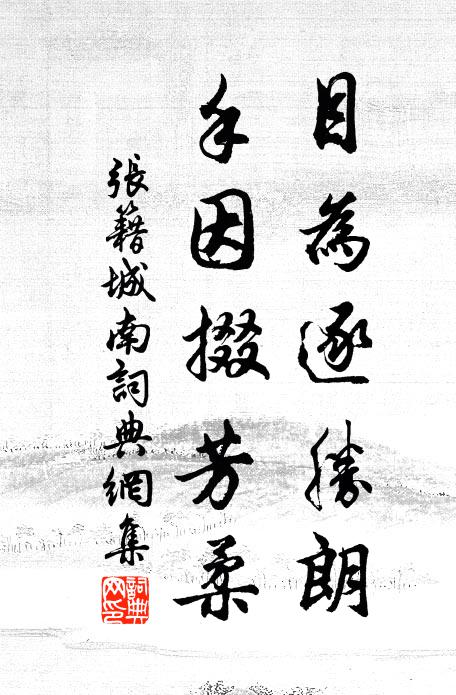 目為逐勝朗
手因掇芳柔
張籍城南詞典網集
詞典網印